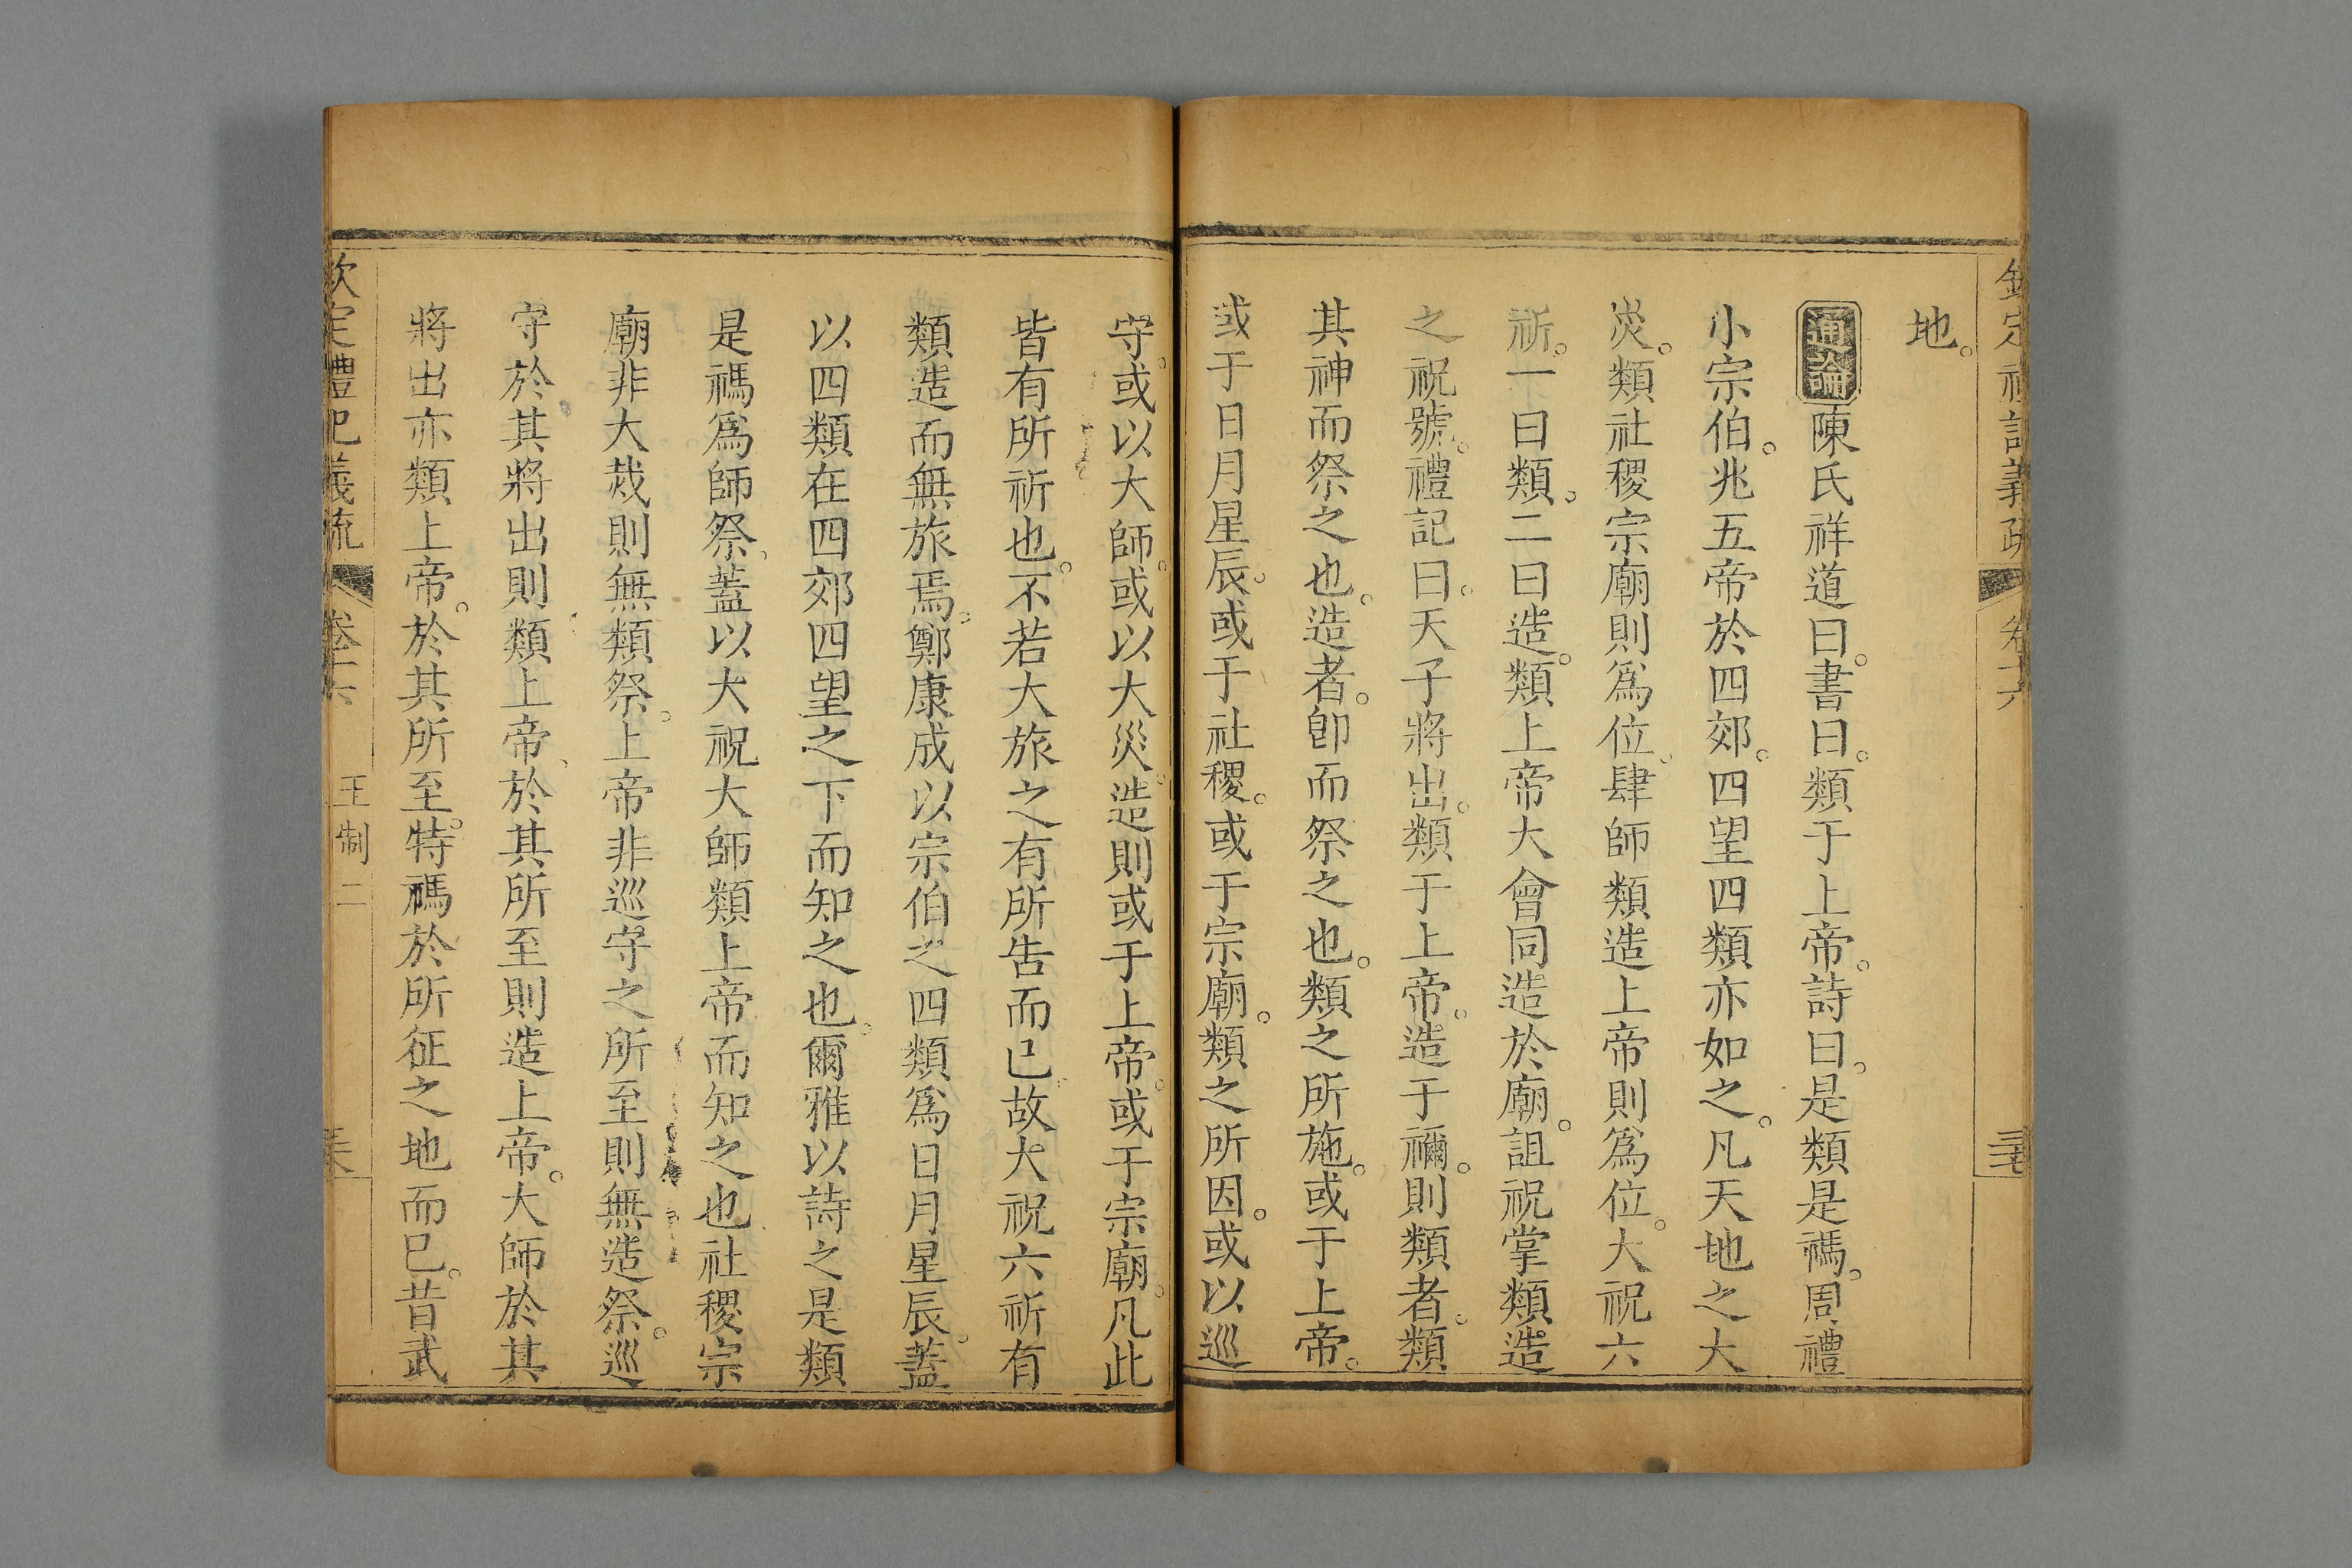 地。
通論陳氏祥道曰。書曰。類于上帝。詩曰。是類是禡。周禮
小宗伯。兆五帝於四郊。四望四類亦如之。凡天地之大
烖。類社稷宗廟則爲位。肆師類造上帝則爲位。大祝六
祈。一曰類。二曰造。類上帝大會同造於廟。詛祝掌類造
之祝號。禮記曰。天子將出。類于上帝。造于禰。則類者。類
其神而祭之也。造者。卽而祭之也。類之所施。或于上帝。
或于日月星辰。或于社稷。或于宗廟。類之所因。或以巡
守。或以大師。或以大災。造則或于上帝。或于宗廟。凡此
皆有所祈也。不若大旅之有所告而已。故大祝六祈有
類造而無旅焉。鄭康成以宗伯之四類爲日月星辰。蓋
以四類在四郊四望之下而知之也。爾雅以詩之是類
是禡爲師祭、蓋以大祝大師類上帝而知之也、社稷宗
廟非大烖則無類祭。上帝非巡守之所至則無造祭。巡
守於其將出則類上帝、於其所至則造上帝。大師於其
將出亦類上帝。於其所至。特禡於所征之地而已。昔武
欽定禮記義疏 卷十六 王制二